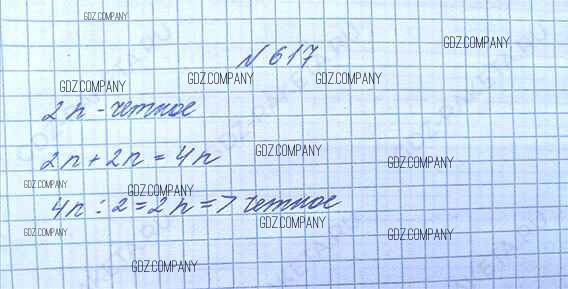 GDZ.COMPANY
GDZ.COMPANY
N 617
GDZ.COMPANY GDZ.COMPANY GDZ.COMPANY
2n - четное
2n + 2n = 4n
GDZ.COMPANY
GDZ.COMPANY
GDZ.COMPANY GDZ.COMPANY
4n : 2 = 2n => четное
GDZ.COMPANY
GDZ.COMPANY GDZ.COMPANY
GDZ.COMPANY